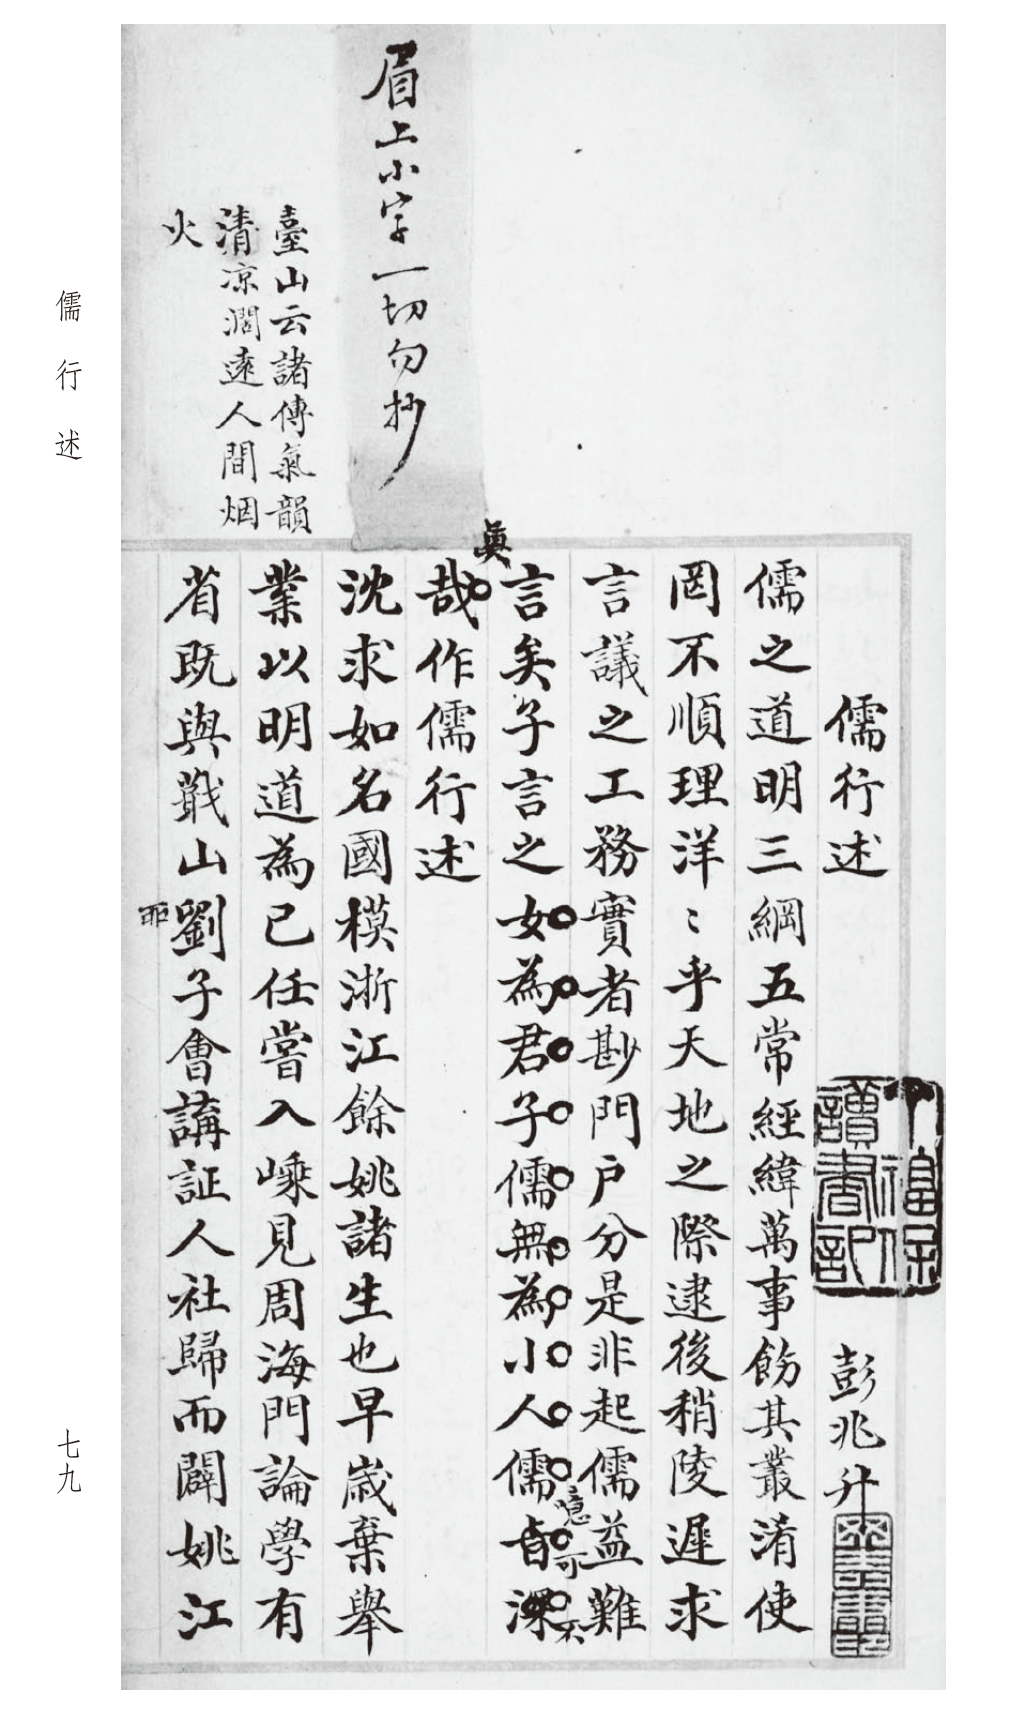 儒行述
七九
眉上小字一切勿抄
臺山云諸傳氣韻
清凉濶遠人間烟
火
儒行述
彭兆升
儒之道明三綱五常經緯萬事飭其叢淆使
罔不順理洋〻乎天地之際逮後稍陵遲求
言議之工務實者尠門户分是非起儒益難
言矣子言之女為君子儒無為小人儒旨深
噫可不
眞
哉作儒行述
沈求如名國模浙江餘姚諸生也早歲棄舉
業以明道為己任嘗入嵊見周海門論學有
省既與戢山劉子會講証人社歸而闢姚江
丁福保
讀書記